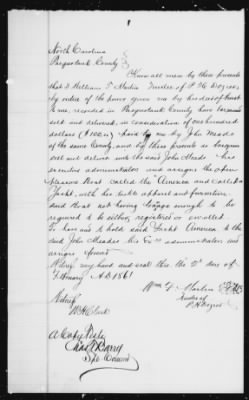 North Carolina
Pasquotank County
Know all men by these presents
that I William F. Martin Trustee of P. H. Dozier
by virtue of the power given me by his deed of trust
to me, recorded in Pasquotank County have bargained
sold and delivered in consideration of one hundred
dollars ($100.00) paid by me by John Meads
of the same County, and by these presents do bargain
sell and deliver unto the said John Meads his
executors administrators and assigns the open
pleasure Boat called the America and called a
Yacht, with her sails apparel and furniture,
said Boat not having tonnage enough to be
required to be either registered or enrolled.
To have and to hold said Yacht America to the
said John Meades his Exrs administrators and
assigns forever
Witness my hand and seal this the 2d day of
February A.D. 1861
Wm. F. Martin
Trustee of
P. H. Dozier
Witness
A Copy Teste